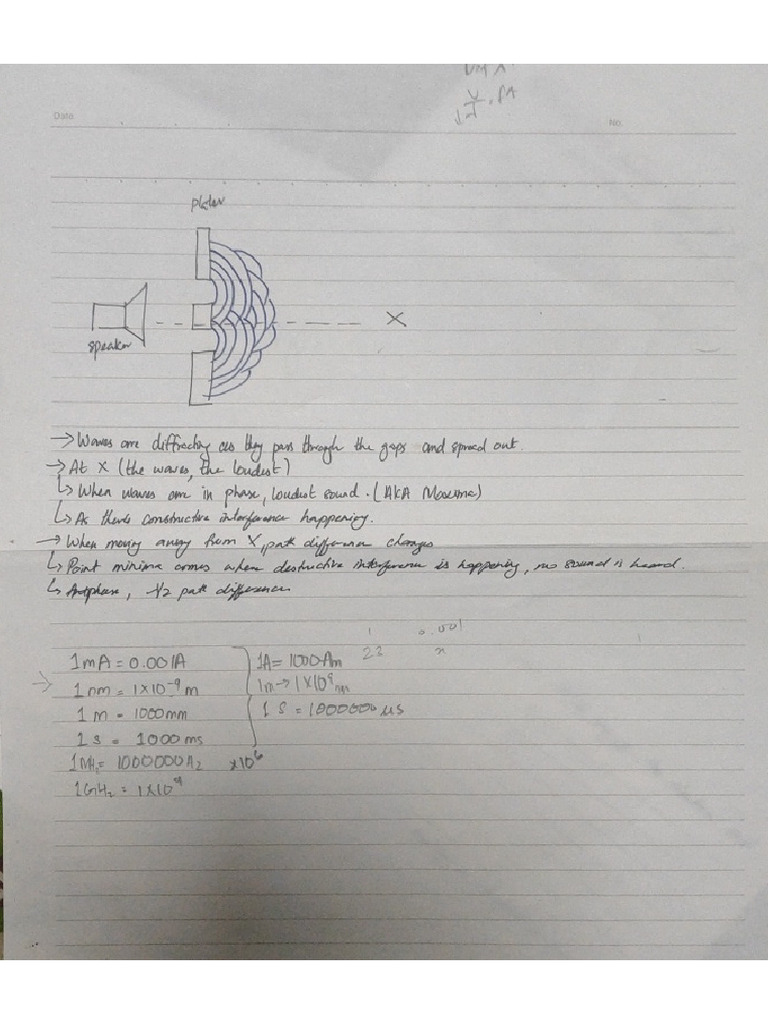 Date
No.
speaker
X
→ Waves are diffracting as they pass through the gaps and spread out.
→ At X (the waves, the loudest)
↳ When waves are in phase, loudest sound. (AKA Maxima)
↳ As there constructive interference happening.
→ When moving away from X, path difference changes
↳ Point minima comes when destructive interference is happening, no sound is heard.
↳ Antiphase, 1/2 path difference
1 0.001
23 x
1mA = 0.001A
1A = 1000Am
→ 1nm = 1x10⁻⁹ m
1m → 1x10⁹nm
1 m = 1000mm
1 s = 1000000 μs
1 s = 1000ms
1MHz = 1000000Hz x10⁶
1GHz = 1x10⁹